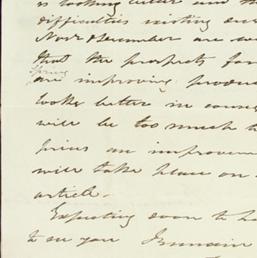 is looking better and th
difficulties existing
Novr & December are
that the prospects for
Spring
are improving produc
looks better in cons
will be too much t
prices an improvem
will take place on
article.
Expecting soon to h
to see you I remain